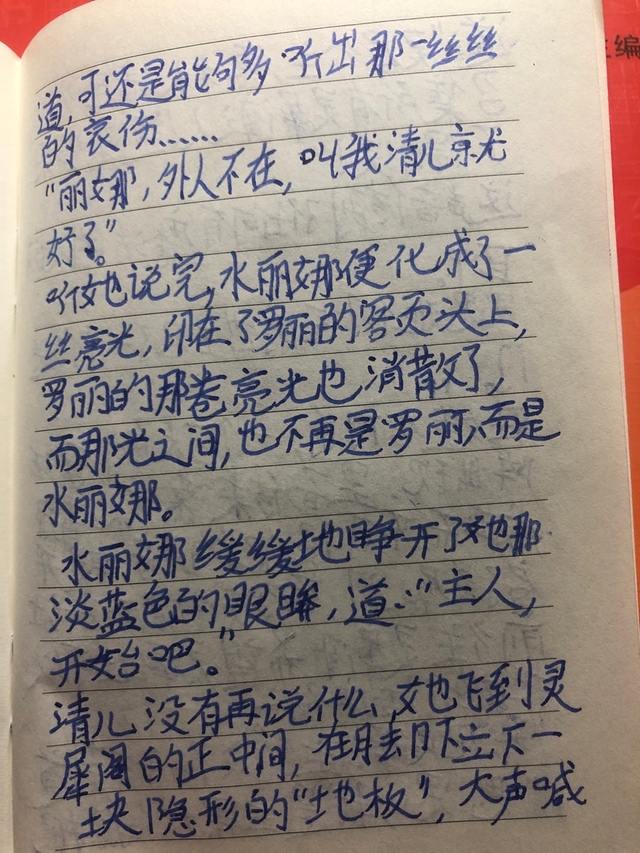 主编
道,可还是能够多听出那一丝丝
的哀伤……
“丽娜,外人不在,叫我清儿就
好了。”
听她说完,水丽娜便化成了一
丝亮光,印在了罗丽的额头上,
罗丽的那卷亮光也消散了,
而那光之间,也不再是罗丽,而是
水丽娜。
水丽娜缓缓地睁开了她那
淡蓝色的眼眸,道:“主人,
开始吧。”
清儿没有再说什么,她飞到灵
犀阁的正中间,在脚下立下一
块隐形的“地板”,大声喊